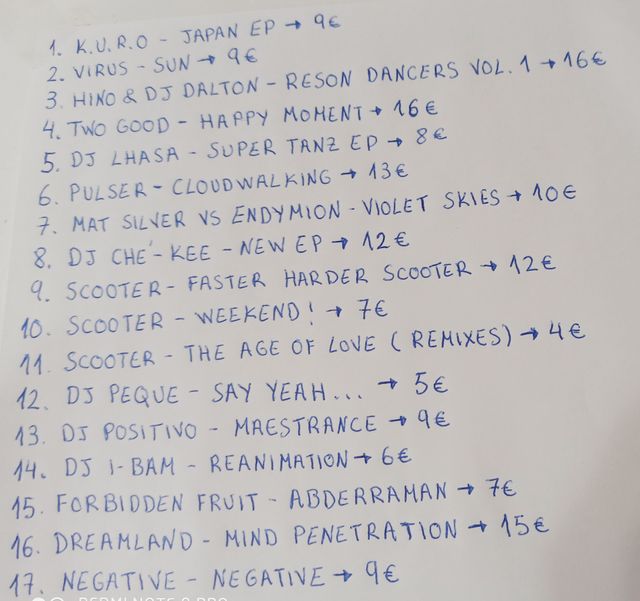 1. K.U.R.O - JAPAN EP → 9€
2. VIRUS - SUN → 9€
3. HINO & DJ DALTON - RESON DANCERS VOL. 1 → 16€
4. TWO GOOD - HAPPY MOMENT → 16€
5. DJ LHASA - SUPER TANZ EP → 8€
6. PULSER - CLOUDWALKING → 13€
7. MAT SILVER VS ENDYMION - VIOLET SKIES → 10€
8. DJ CHE'-KEE - NEW EP → 12€
9. SCOOTER - FASTER HARDER SCOOTER → 12€
10. SCOOTER - WEEKEND! → 7€
11. SCOOTER - THE AGE OF LOVE (REMIXES) → 4€
12. DJ PEQUE - SAY YEAH... → 5€
13. DJ POSITIVO - MAESTRANCE → 9€
14. DJ I-BAM - REANIMATION → 6€
15. FORBIDDEN FRUIT - ABDERRAMAN → 7€
16. DREAMLAND - MIND PENETRATION → 15€
17. NEGATIVE - NEGATIVE → 9€